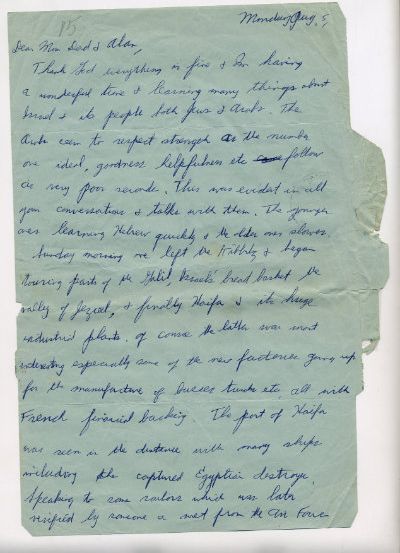 15
Monday, Aug. 5,
Dear Mom Dad & Alan,
Thank God everything is fine & I'm having
a wonderful time & learning many things about
Israel & its people both Jews & Arabs. The
Arabs seem to respect strength as the number
one ideal, goodness helpfulness etc follow
as very poor seconds. This was evident in all
your conversations & talks with them. The younger
ones learning Hebrew quickly & the older ones slower.
Sunday morning we left the Kibbutz & began
touring parts of the Galil Israel's bread basket the
valley of Jezreel, & finally Haifa & its huge
industrial plants. Of course the latter was most
interesting especially some of the new factories going up
for the manufacture of busses trucks etc. all with
French financial backing. The port of Haifa
was seen in the distance with many ships
including the captured Egyptian destroyer.
Speaking to some sailors which was later
verified by someone I met from the Air Force